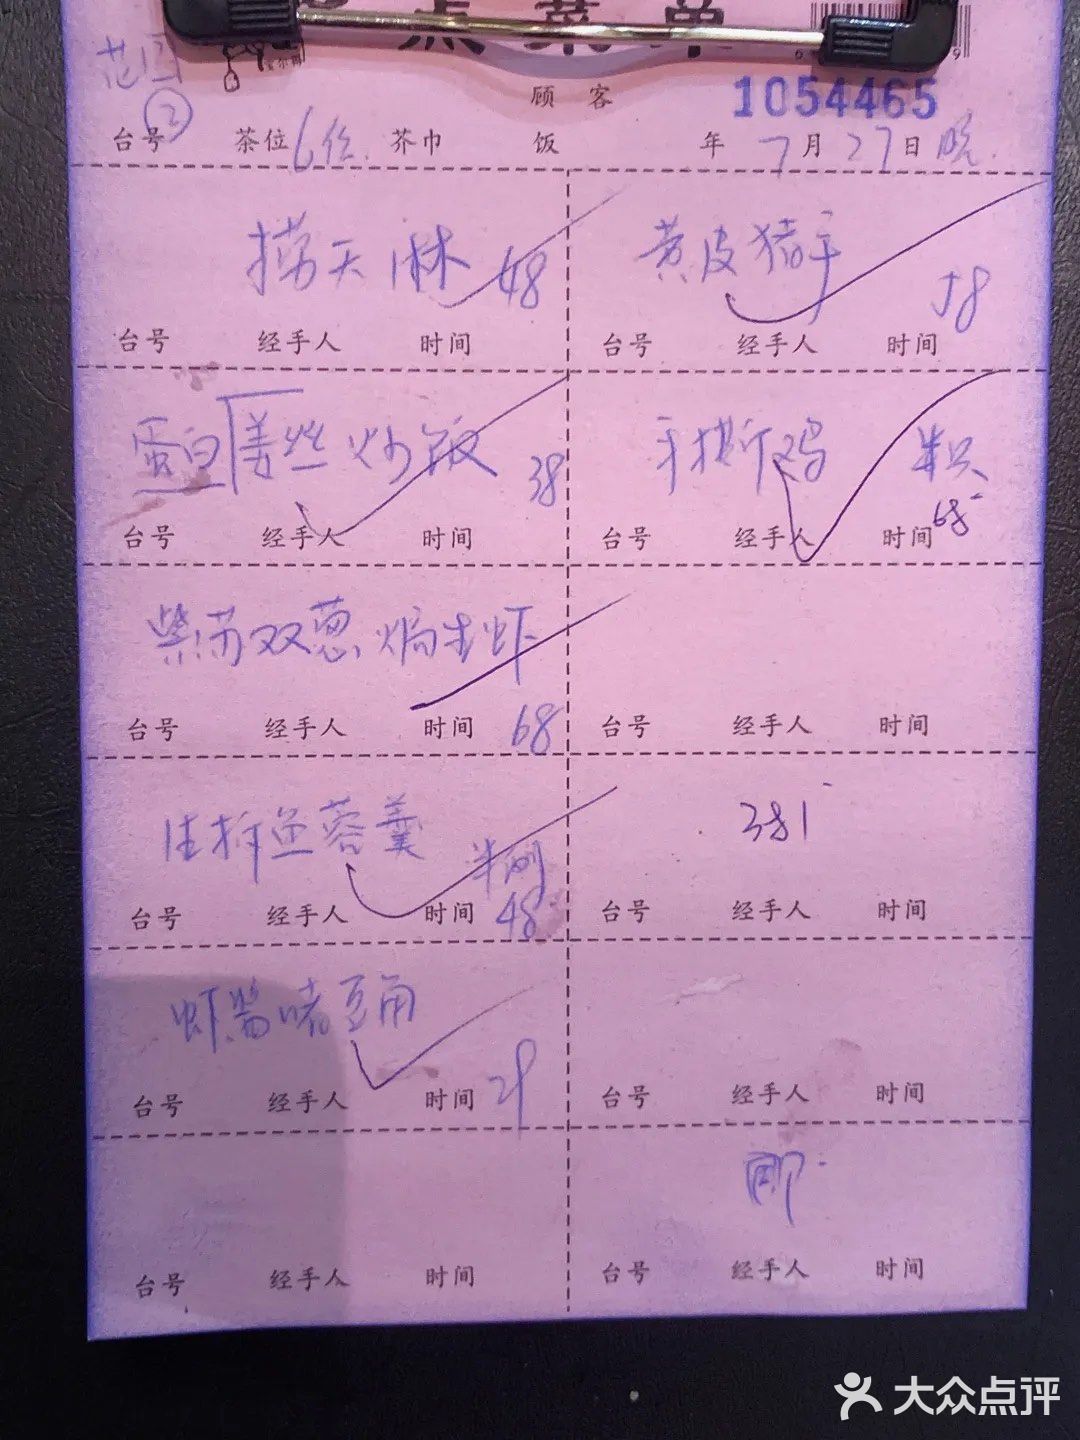 点菜单
花园
②
顾客
1054465
台号 茶位 6位 芥巾 饭 年 7月27日 晚
捞天淋 48
黄皮猪手 58
台号 经手人 时间 台号 经手人 时间
蛋白姜丝炒饭 38
手撕鸡 半只 68
台号 经手人 时间 台号 经手人 时间
紫苏双葱焗生虾 68
台号 经手人 时间 台号 经手人 时间
生拆鱼蓉羹 半例 48
381
台号 经手人 时间 台号 经手人 时间
虾酱啫豆角
台号 经手人 时间 台号 经手人 时间
台号 经手人 时间 台号 经手人 时间
大众点评